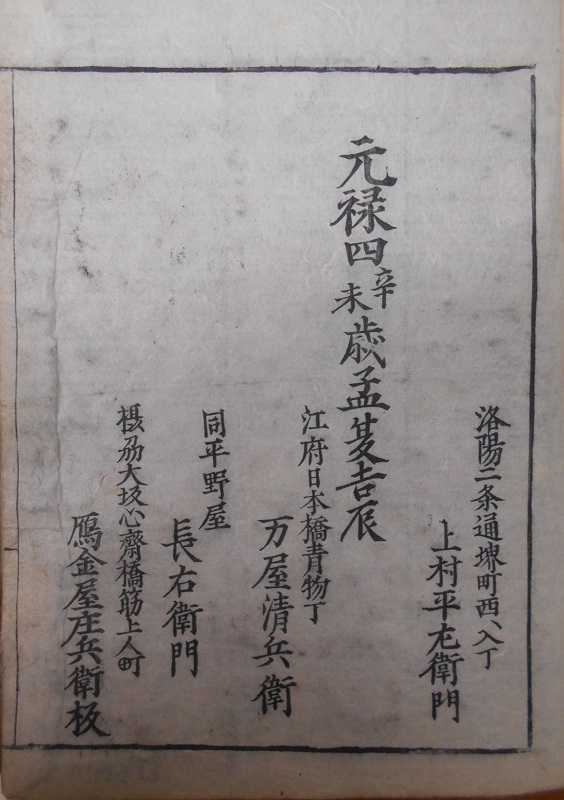 洛陽二条通堺町西ヘ入丁
上村平左衛門
元禄四辛未歳孟夏吉辰
江府日本橋青物丁
万屋清兵衛
同平野屋
長右衛門
摂刕大坂心齋橋筋上人町
鴈金屋庄兵衛板